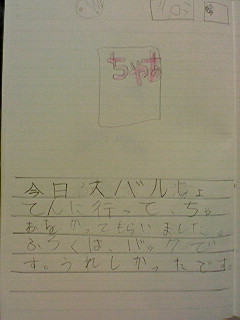 ちゃお
今日スバルしょ
てんに行って、ちゃ
おをかってもらいました。
ふろくは、バックで
す。うれしかったです。